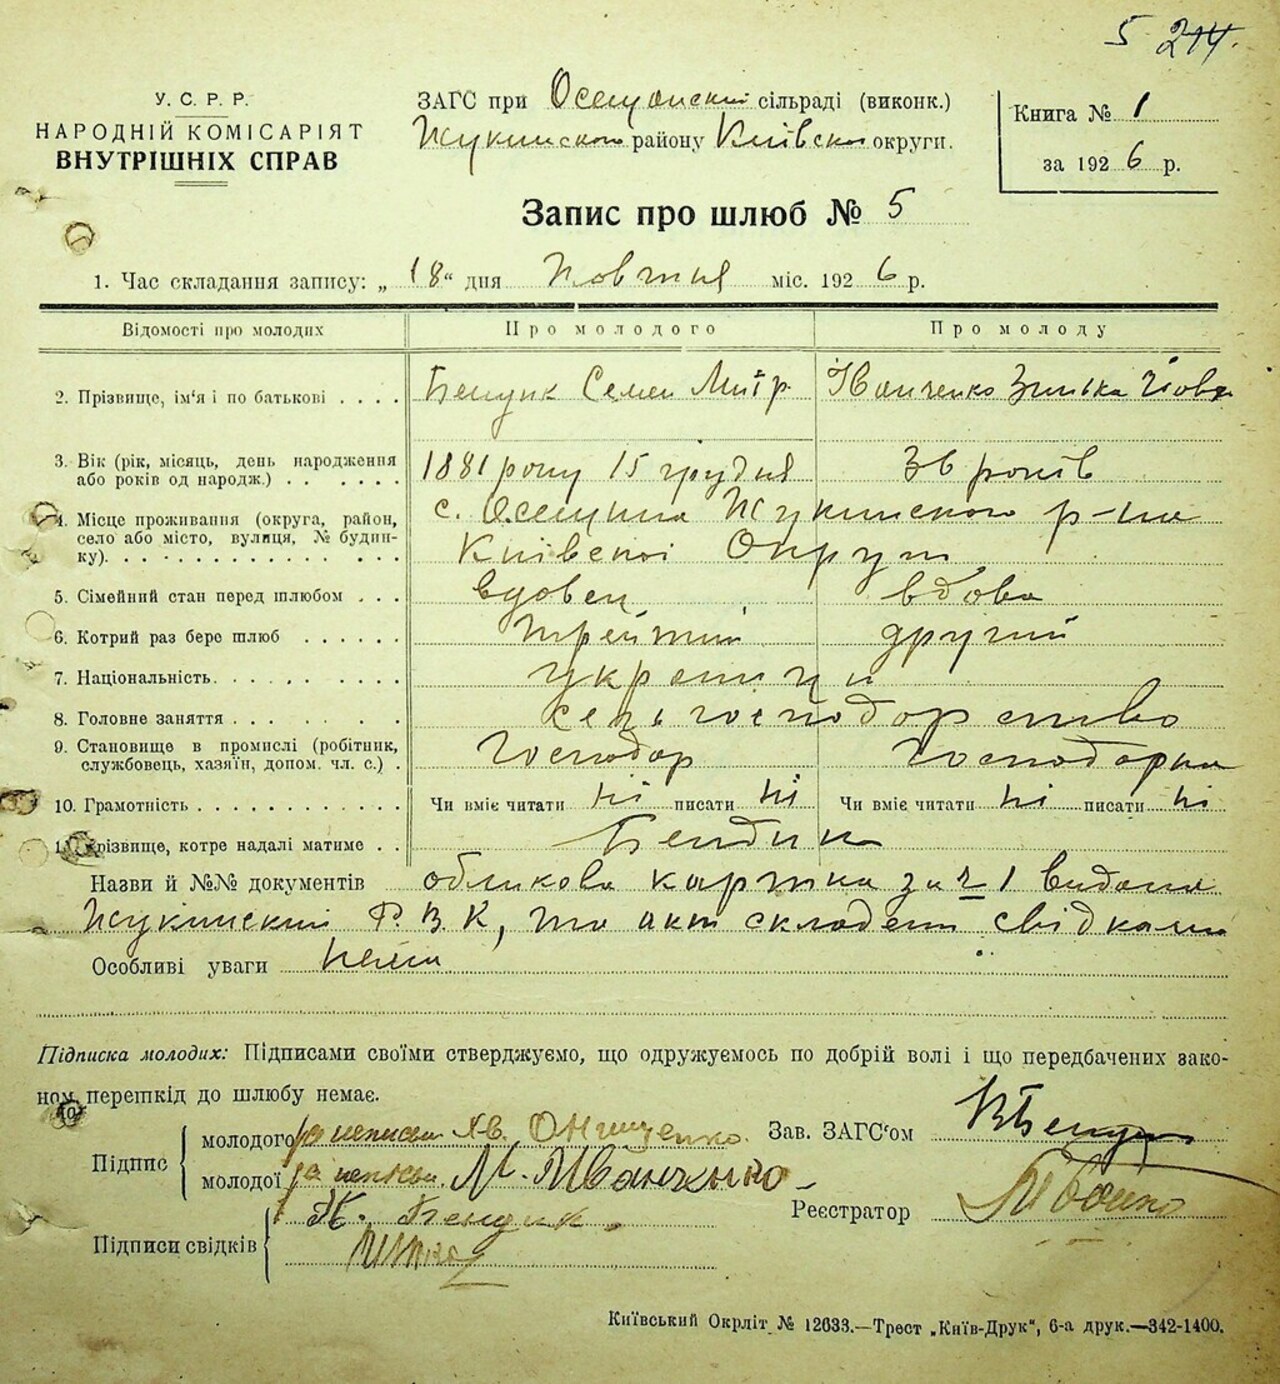 5 214.
У. С. Р. Р.
НАРОДНІЙ КОМІСАРІЯТ
ВНУТРІШНІХ СПРАВ
ЗАГС при Осещанскій сільраді (виконк.)
Жукинского району Київскої округи.
Книга № 1
за 1926 р.
Запис про шлюб № 5
1. Час складання запису: „18“ дня Жовтня міс. 1926 р.
Відомості про молодих Про молодого Про молоду
2. Прізвище, ім'я і по батькові . . . . Бендик Семен Митр. Іванченко Зінька
3. Вік (рік, місяць, день народження 1881 року 15 грудня 36 років
або років од народж.) . . . . . .
4. Місце проживання (округа, район, с. Осещина Жукинского р-на
село або місто, вулиця, № будин- Київскої Округи
ку). . . . . . . . . . . . . .
5. Сімейний стан перед шлюбом . . . вдовец вдова
6. Котрий раз бере шлюб . . . . . . третий другий
7. Національність. . . . . . . . . українці
8. Головне заняття . . . . . . . . сельгосподарство
9. Становище в промислі (робітник, Господар Господарка
службовець, хазяїн, допом. чл. с.) .
10. Грамотність . . . . . . . . . . . Чи вміє читати ні писати ні Чи вміє читати ні писати ні
11. Прізвище, котре надалі матиме . . Бендик
Назви й №№ документів облікова картка за № 1 видана
Жукинский Р.В.К, та акт складен свідками
Особливі уваги нема
Підписка молодих: Підписами своїми стверджуємо, що одружуємось по добрій волі і що передбачених зако-
ном перешкід до шлюбу немає.
Підпис
молодого за неписьм. Хв. Онищенко.
молодої за неписьм. М. Иванченко
Зав. ЗАГС'ом
Реєстратор
Підписи свідків
К. Бендик.
Київський Окрліт № 12633.—Трест „Київ-Друк“, 6-а друк.—342-1400.